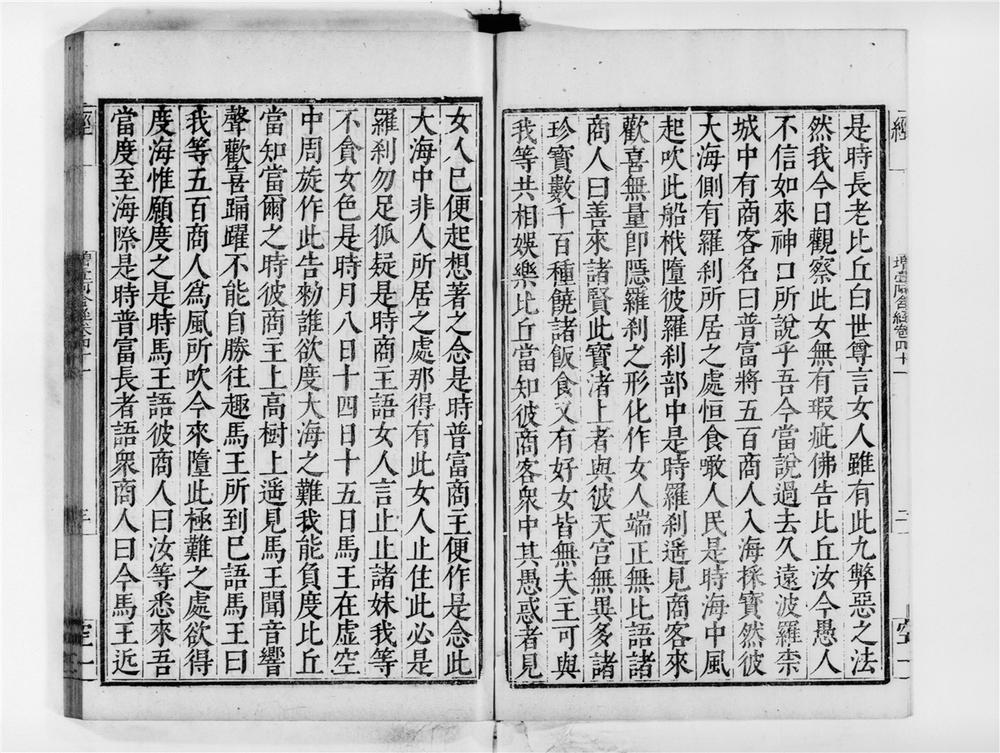 是時長老比丘白世尊言女人雖有此九弊惡之法
然我今日觀察此女無有瑕疵佛告比丘汝今愚人
不信如來神口所說乎吾今當說過去久遠波羅柰
城中有商客名曰普富將五百商人入海採寶然彼
大海側有羅刹所居之處恒食噉人民是時海中風
起吹此船栰墮彼羅刹部中是時羅刹遙見商客來
歡喜無量卽隱羅刹之形化作女人端正無比語諸
商人曰善來諸賢此寶渚上者與彼天宮無異多諸
珍寶數千百種饒諸飯食又有好女皆無夫主可與
我等共相娛樂比丘當知彼商客衆中其愚惑者見
女人已便起想著之念是時普富商主便作是念此
大海中非人所居之處那得有此女人止住此必是
羅刹勿足狐疑是時商主語女人言止止諸妹我等
不貪女色是時月八日十四日十五日馬王在虛空
中周旋作此告勑誰欲度大海之難我能負度比丘
當知當爾之時彼商主上高樹上遙見馬王聞音響
聲歡喜踊躍不能自勝往趣馬王所到已語馬王曰
我等五百商人爲風所吹今來墮此極難之處欲得
度海惟願度之是時馬王語彼商人曰汝等悉來吾
當度至海際是時普富長者語衆商人曰今馬王近